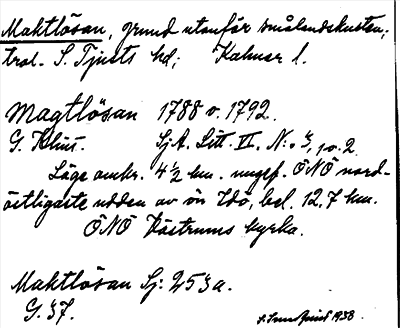 Maktlösan, grund utanför smålandskusten,
trol. S. Tjusts hd; Kalmar l.
Magtlösan 1788 o. 1792.
G. Klint. Sj.A. Litt. VI. N:o 3, 1 o. 2.
Läge omkr. 4 1/2 km. ungef. ÖNÖ nord-
östligaste udden av ön Idö, bel. 12.7 km.
ÖNÖ Västrums kyrka.
Maktlösan Sj: 253a.
G. 37.
1938